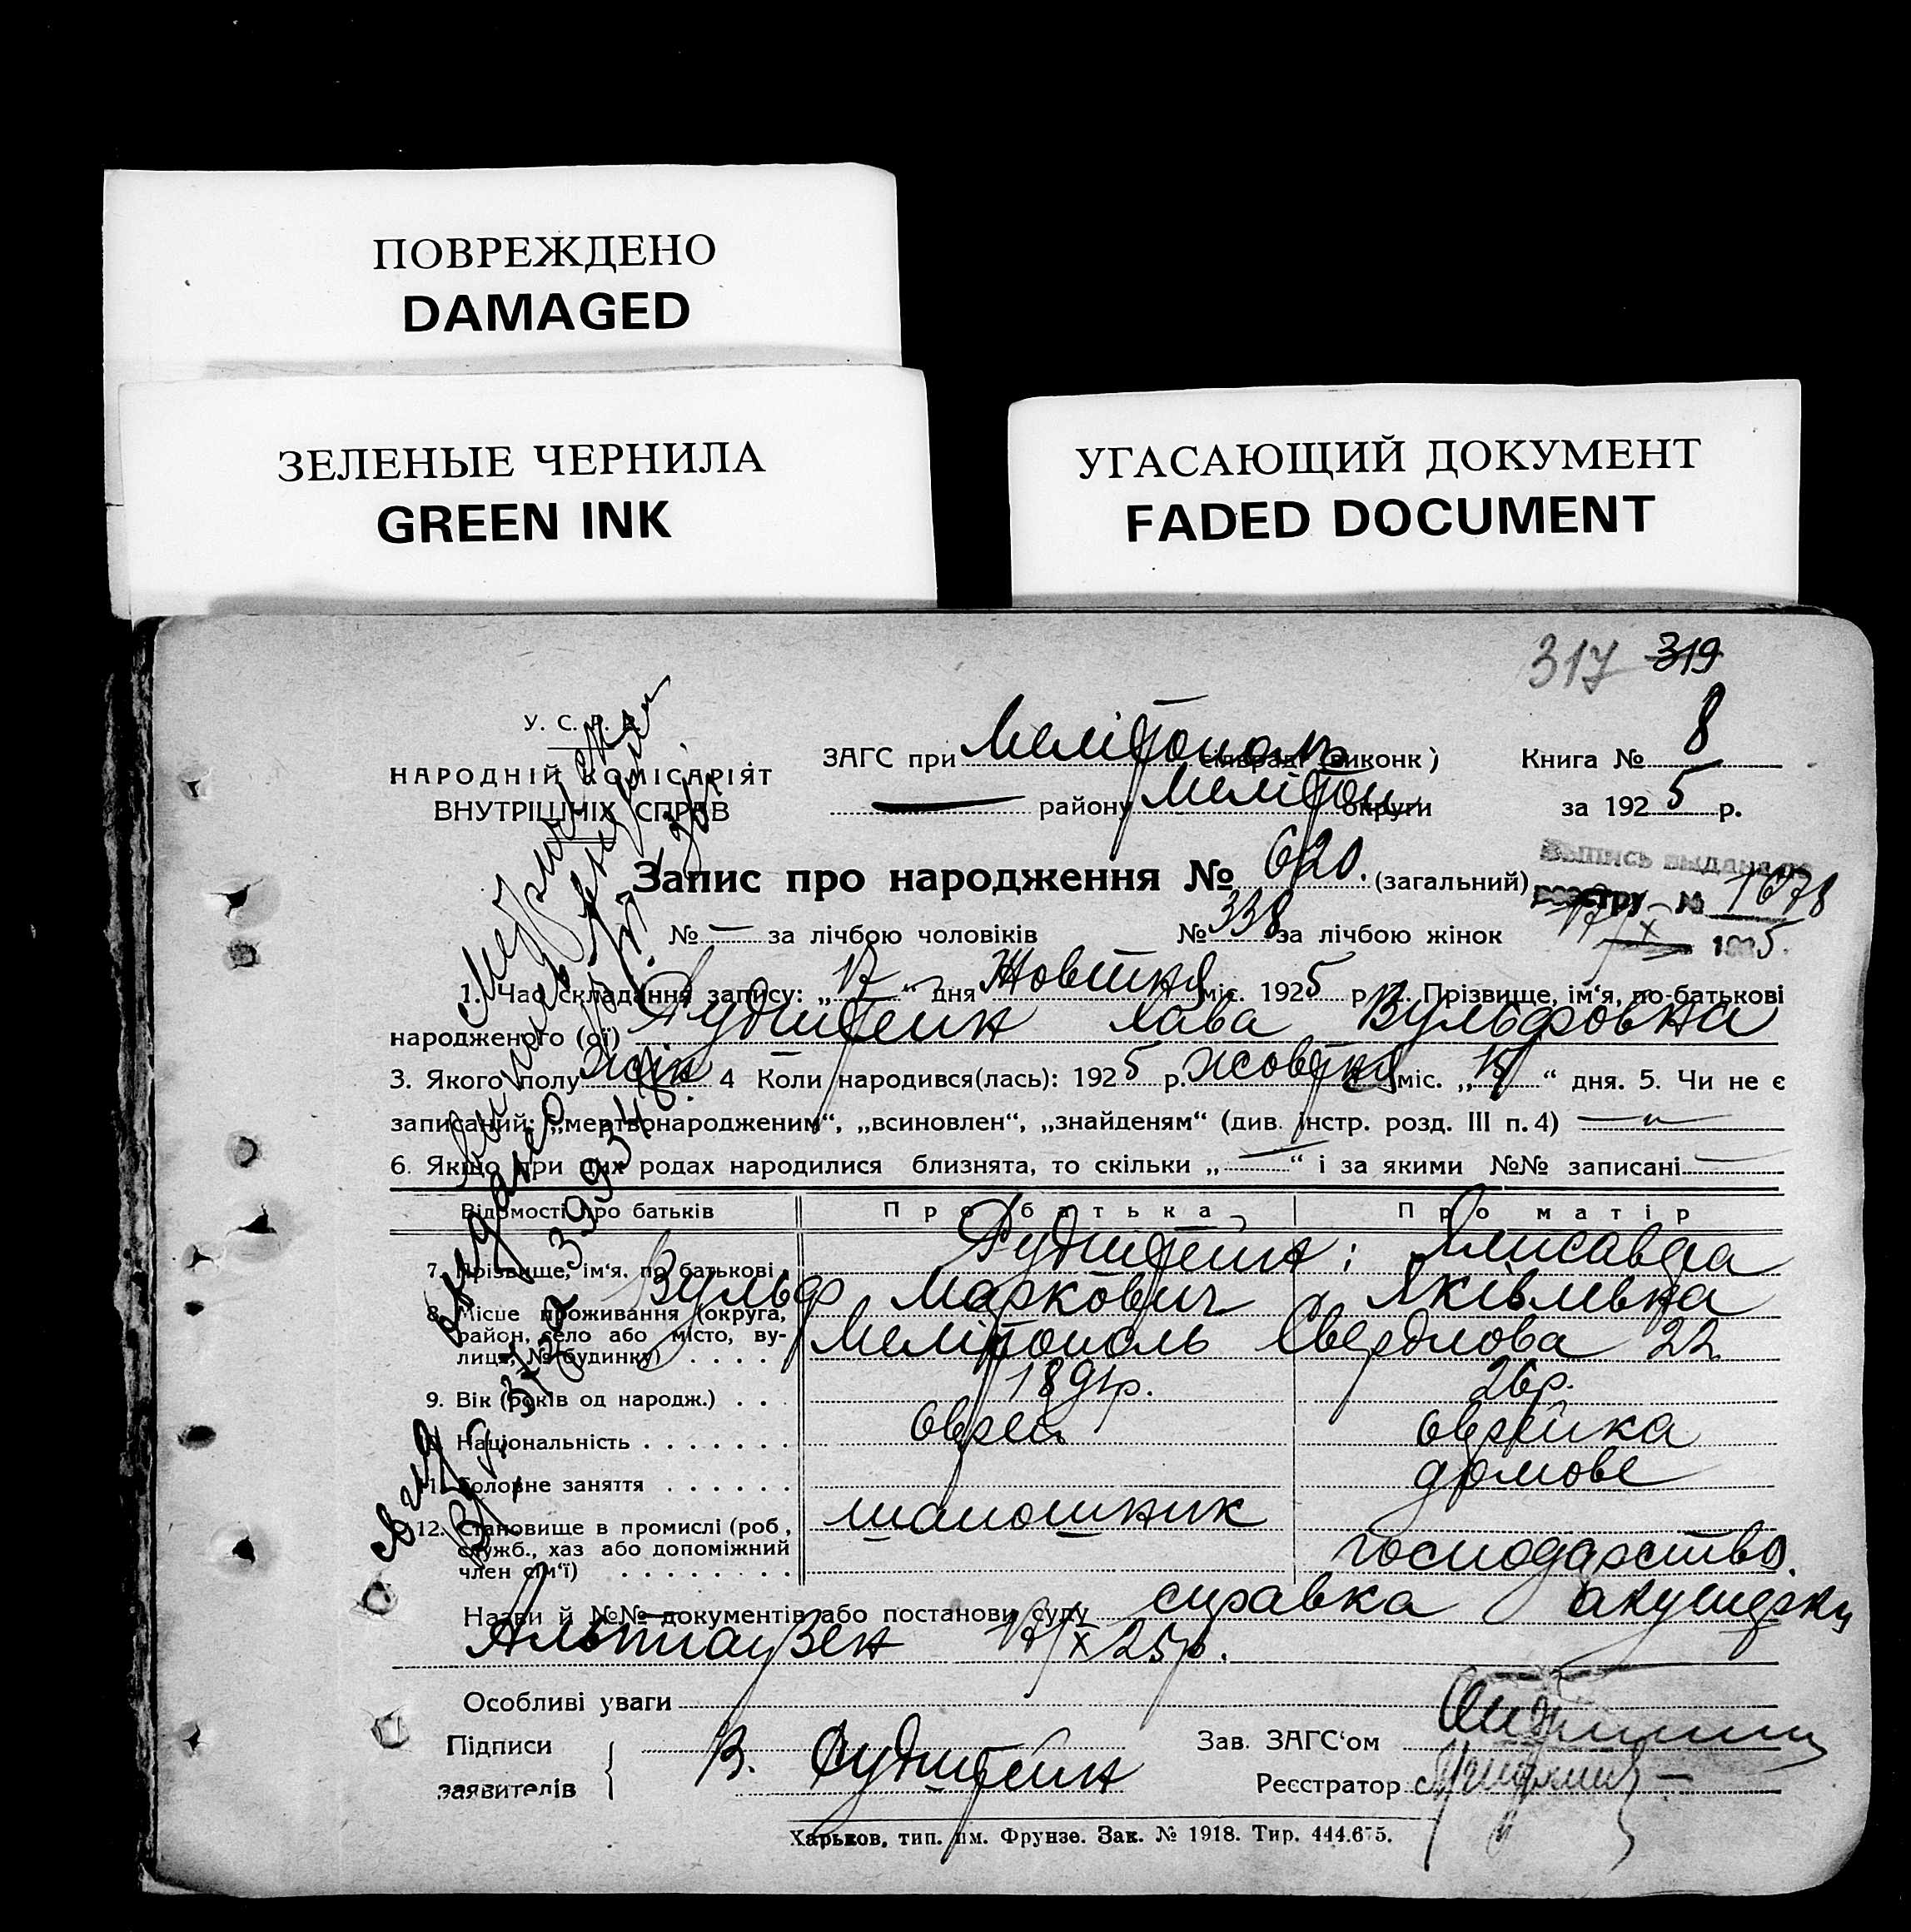 ПОВРЕЖДЕНО
DAMAGED
ЗЕЛЕНЫЕ ЧЕРНИЛА
GREEN INK
УГАСАЮЩИЙ ДОКУМЕНТ
FADED DOCUMENT
317 319
У. С. Р. Р.
НАРОДНІЙ КОМІСАРІЯТ
ВНУТРІШНІХ СПРАВ
ЗАГС при Мелітополь сільраді (виконк)
району Меліто округи
Книга № 8
за 1925 р.
Запис про народження № 620. (загальний)
Выпись выдана по
реестру № 1078
17/X 1925.
№ — за лічбою чоловіків № 338 за лічбою жінок
1. Час складання запису: „17“ дня Жовтня міс. 1925 р. 2. Прізвище, ім‘я, по-батькові
народженого (ої) Рудштейн Хава Вульфовна
3. Якого полу жін 4 Коли народився(лась): 1925 р. жовтня міс. „ “ дня. 5. Чи не є
записаний: „мертвонародженим“, „всиновлен“, „знайденям“ (див. інстр. розд. III п. 4) — „
6. Якщо при цих родах народилися близнята, то скільки „—“ і за якими №№ записані —
Відомості про батьків Про батька Про матір
7. Прізвище, ім‘я, по батькові Рудштейн; Елисавета
Вульф Маркович Яківлівна
8. Місце проживання (округа, район, село або місто, вулиця, № будинку) . . . . Мелітополь Свердлова 22
9. Вік (років од народж.) . . . 26р.
10. Національність . . . . . . . еврей еврейка
11. Головне заняття . . . . . . домове
12. Становище в промислі (роб, служб., хаз або допоміжний член сім‘ї) . . . . . . . . шапошник господарство.
Назви й №№ документів або постанови суду справка акушерки
Альтгаузен 17/X 25р.
Особливі уваги
Підписи
заявителів
В. Рудштейн
Зав. ЗАГС‘ом
Реєстратор
Харьков, тип. им. Фрунзе. Зак. № 1918. Тир. 444.675.